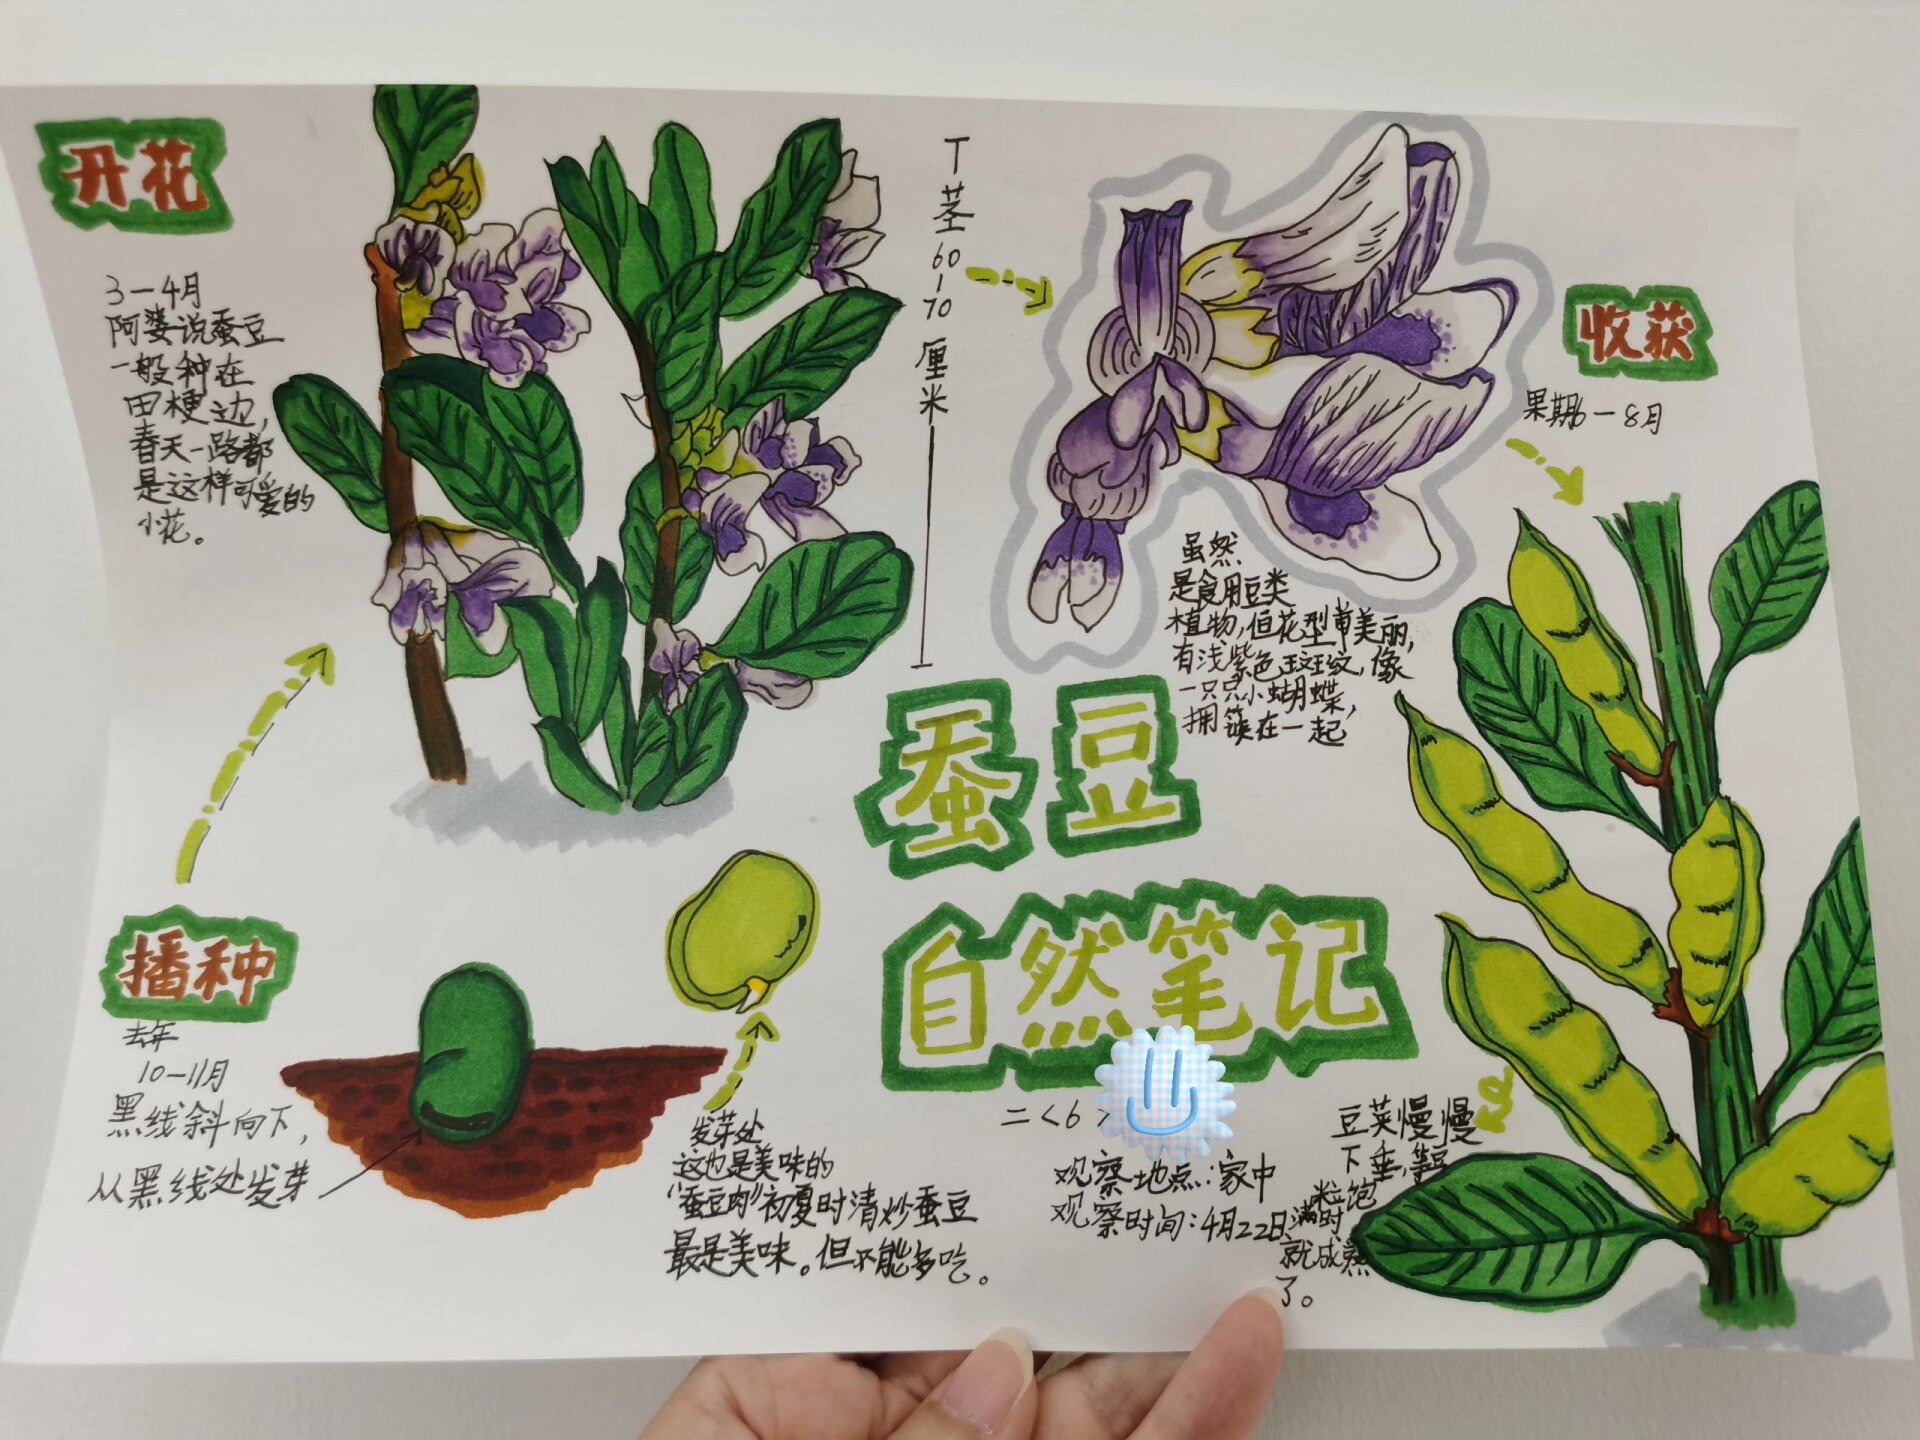 开花
3—4月
阿婆说蚕豆
一般种在
田梗边,
春天一路都
是这样可爱的
小花。
茎60-70厘米
虽然
是食用豆类
植物,但花型单美丽,
有浅紫色斑纹,像
一只只小蝴蝶,
拥簇在一起
收获
果期6—8月
蚕豆
自然笔记
二<6>
观察地点:家中
观察时间:4月22日
豆荚慢慢
下垂,等豆
粒饱
满时,
就成熟
了。
播种
去年
10—11月
黑线斜向下,
从黑线处发芽
发芽处
这也是美味的
“蚕豆肉”初夏时清炒蚕豆
最是美味。但不能多吃。